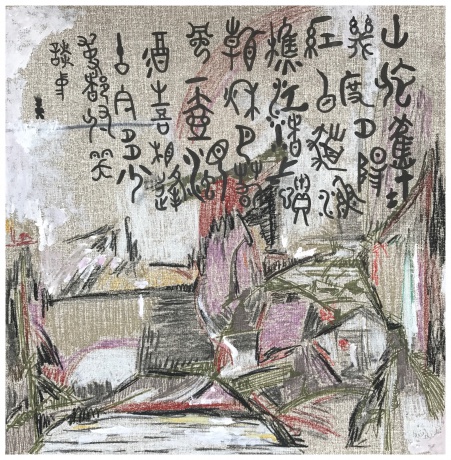 山依舊在
幾度夕陽
紅白髮漁
樵江渚上慣
看秋月春
風一壺濁
酒喜相逢
古今多少
事都付笑
談中